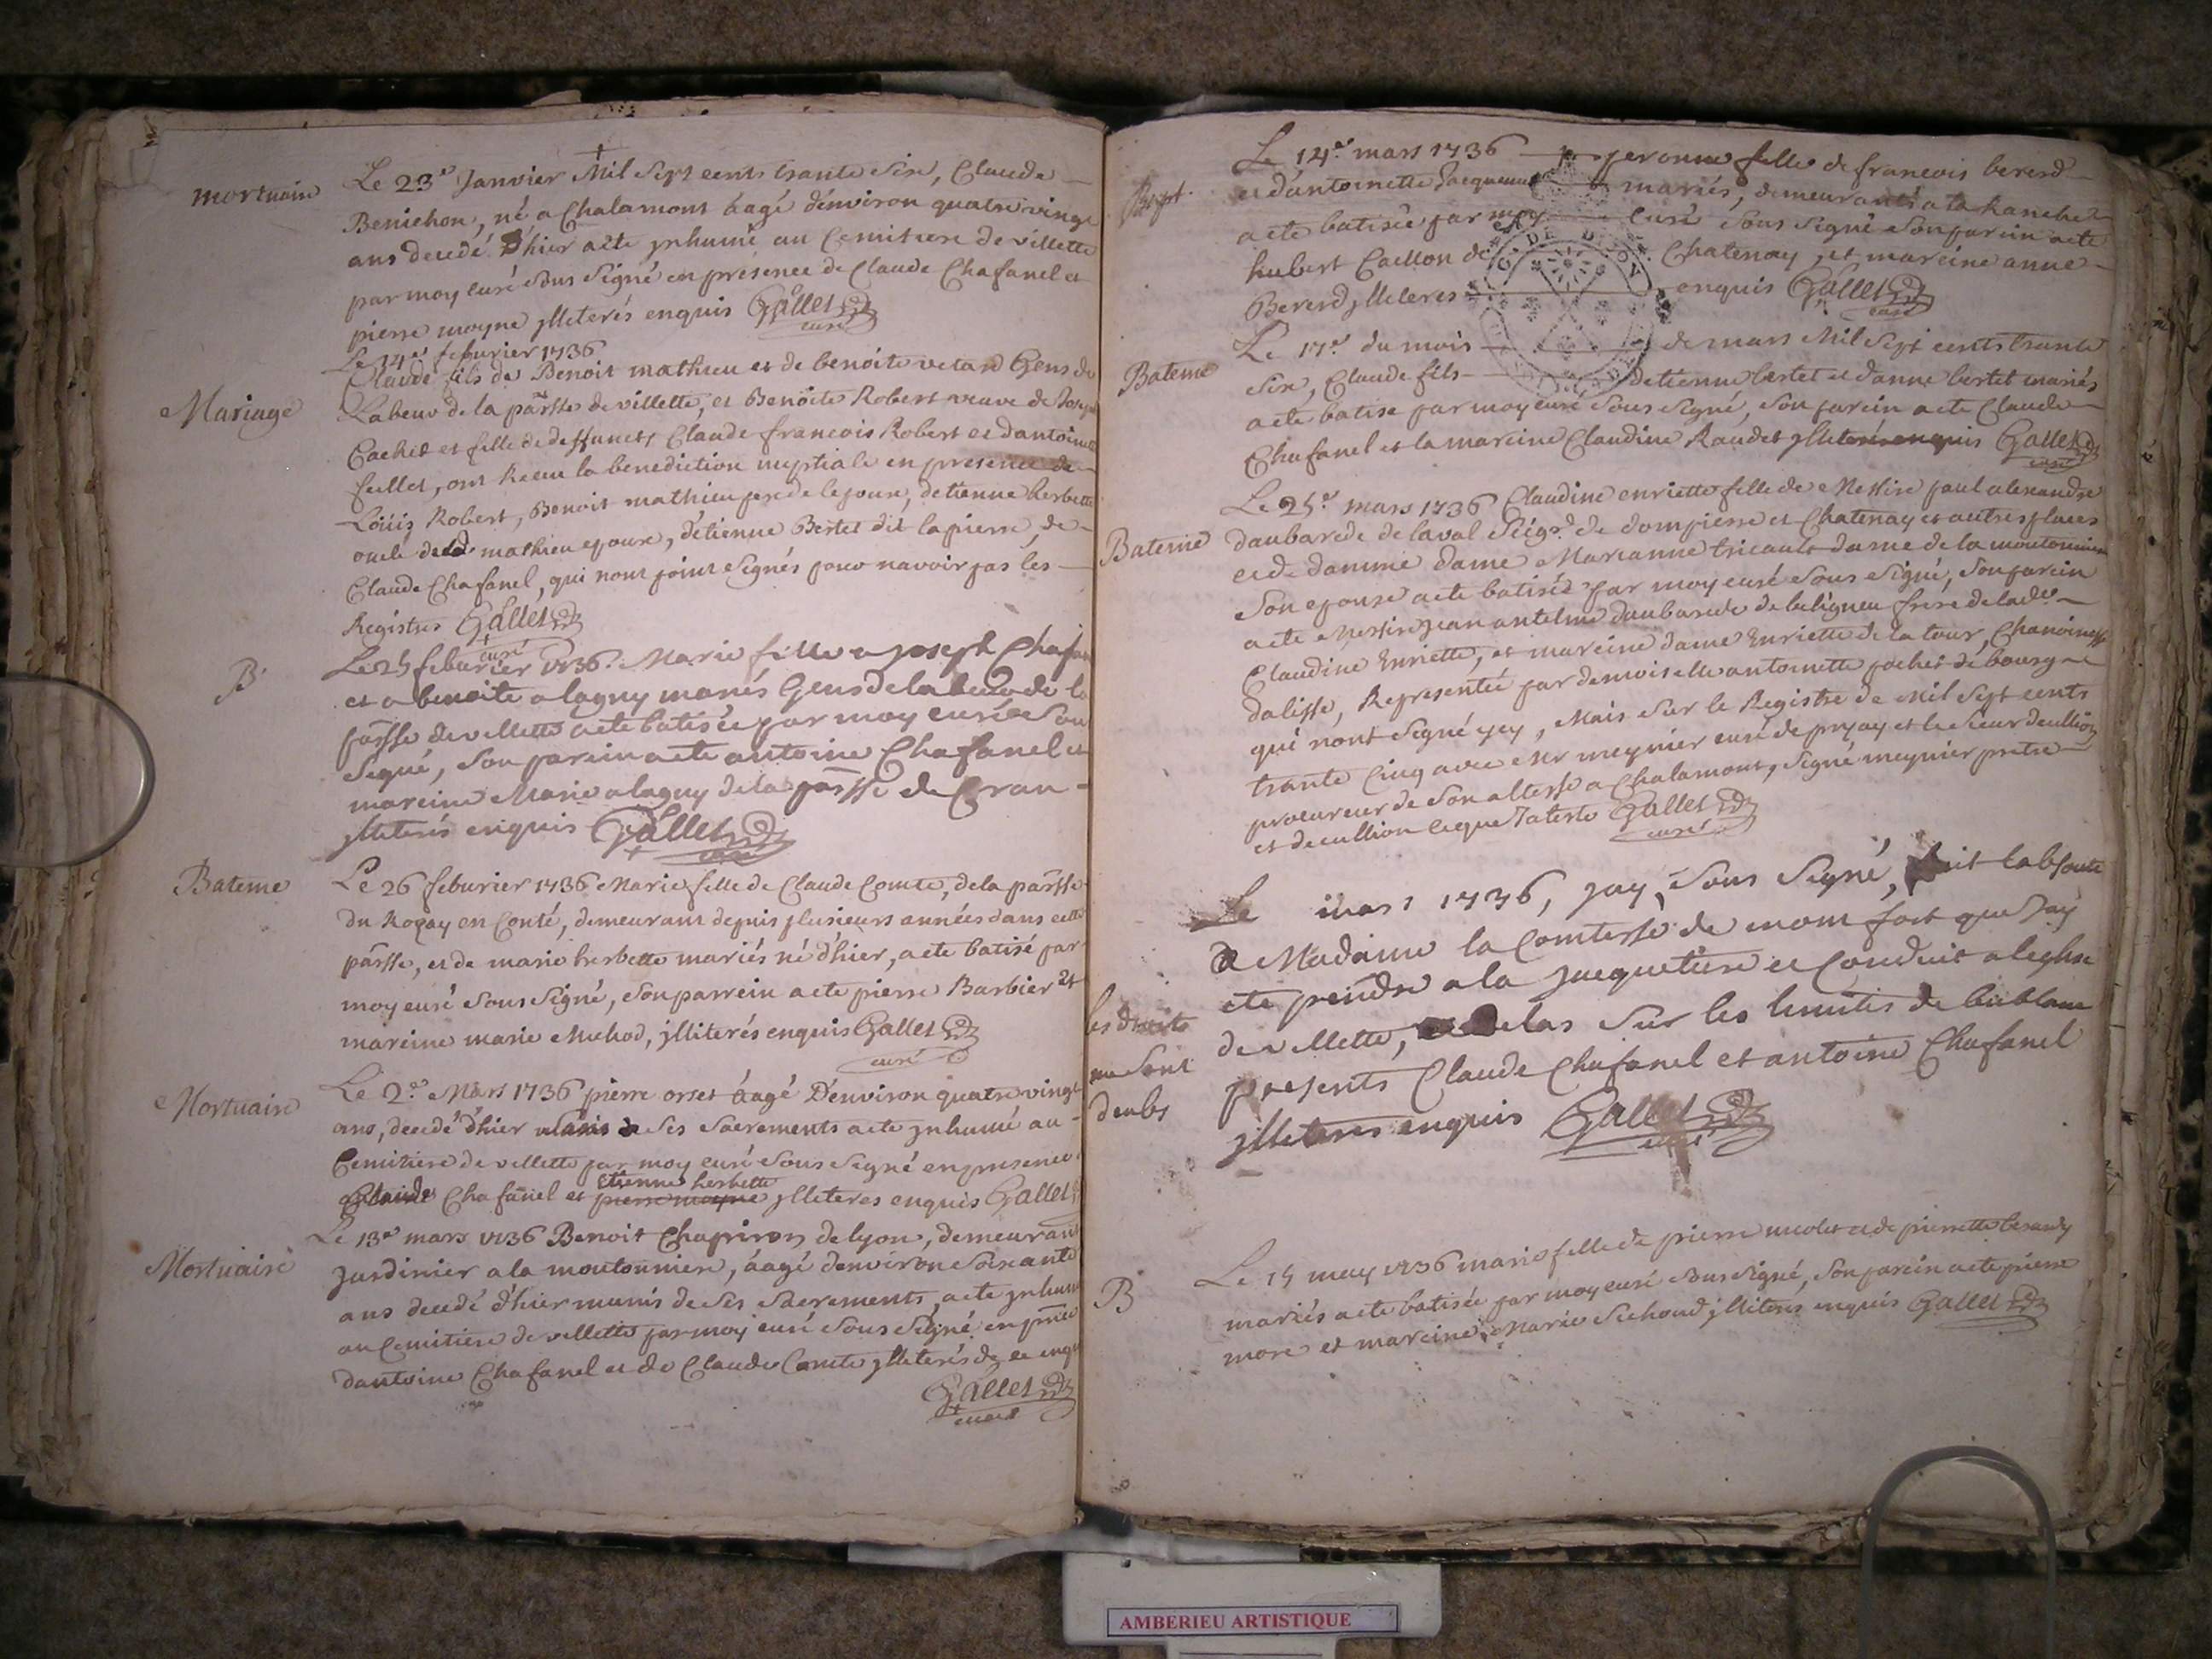 mortuaire
Le 23e Janvier Mil Sept cents trante Six, Claude
Benichon, né a Chalamont áagé d'environ quatre vingt
ans decedé D'hier a eté jnhumé au Cemitiere de villette
par moy curé Sous Signé en présence de Claude Chafanel et
pierre moyne jlliterés enquis Gallet
curé
Le 14e feburier 1736
Mariage
Claude fils de Benoit mathieu et de benoite vetard Gens de
Labeur de la pársse de villette, et Benoite Robert veuve de Joseph
Cachet et fille de deffuncts Claude francois Robert et dantoinette
feillet, ont Receu la benediction nuptiale en presence de
Loüis Robert, Benoit mathieu pere de lepoux, detienne herbette
oncle dud mathieu epoux, détienne Bertet dit lapierre, de
Claude Chafanel, qui nont point Signés pour navoir pas les
Régistres Gallet
curé
B.
Le 25 feburier 1736. Marie fille a joseph Chafanel
et a benoite alagny mariés Gens de labeur de la
pársse de villette a eté batisée par moy curé Sou
Signé, Son parcin a eté antoine Chafanel et
marcine Marie alagny de la pársse de Cran
jlliterés enquis Gallet
curé
Bateme
Le 26 feburier 1736 Marie fille de Claude Comte, de la pársse
du Rogay en Conté, demeurant depuis plusieurs années dans cette
pársse, et de marie herbette mariés né d'hier, a eté batisé par
moy curé Sous Signé, Son parrein a eté pierre Barbier et
marcine marie Michod, jlliterés enquis Gallet
curé
Mortuaire
Le 2e Mars 1736 pierre orset áagé D'environ quatre vingt
ans, decedé d'hier de Ses Sacrements a eté jnhumé au
Cemitiere de villette par moy curé Sous Signé en presence
Claude Chafanel et pierre moyne etienne herbette jlliteres enquis Gallet
Mortuaire
Le 13e mars 1736 Benoit Chapiron de lyon, demeurant
Jardinier a la moutonniere, áagé denviron Soixante
ans decedé d'hier munis de Ses Sacrements, a eté jnhumé
au Cemitiere de villette par moy curé Sous Signé en pnce
dantoine Chafanel et de Claude Comte jlliterés de ce enquis
Gallet
curé
Bapt.
Le 14e mars 1736 peronne fille de francois bererd
et d'antoinette Jacquemet mariés, demeurants a la Ranche
a eté batisée par moy curé Sous Signé Son parcin a eté
hubert Caillon de Chatenay, et marcine anne
Bererd jlliteres enquis Gallet
curé
Bateme
Le 17e du mois de mars Mil Sept cents trante
Six, Claude fils detienne bertet et danne bertet mariés
a eté batisé par moy curé Sous Signé, Son parcin a eté Claude
Chafanel et la marcine Claudine Raudet jlliterés enquis Gallet
curé
Bateme
Le 25e mars 1736 Claudine enriette fille de Messire paul alexandre
daubarede de laval Seigr. de dompierre et Chatenay et autres places
et de damme dame Marianne tricault dame de la moutonniere
Son epouse a eté batisée par moy curé Sous Signé, Son parcin
a eté Messire jean antelme daubarede de beligneu frere de lade
Claudine Enriette, et marcine dame Enriette de la tour, Chanoinesse
dalisse, Representée par demoiselle antoinette pochet de bourg
qui nont Signé ycy, Mais Sur le Registre de Mil Sept cents
trante Cinq avec Mr meynier curé de prjay et le Sieur decullion
procureur de Son altesse a Chalamont, Signé meynier pretre
et decullion ceque Jateste Gallet
curé
Le mars 1736, jay, Sous Signé, fait labsoute
a Madame la Comtesse de mont fort que Jay
eté prendre a la jacquetiere et Conduit a leglise
de villette, delas Sur les limites de
presents Claude Chafanel et antoine Chafanel
jlliteres enquis Gallet
curé
les droits
me Sont
deubs
B
Le 15 may 1736 marie fille de pierre nicolet et de pierrette berardy
mariés a eté batisée par moy curé Sous Signé, Son parcin a eté pierre
more et marcine Marie Sichoud jlliterés enquis Gallet
AMBERIEU ARTISTIQUE